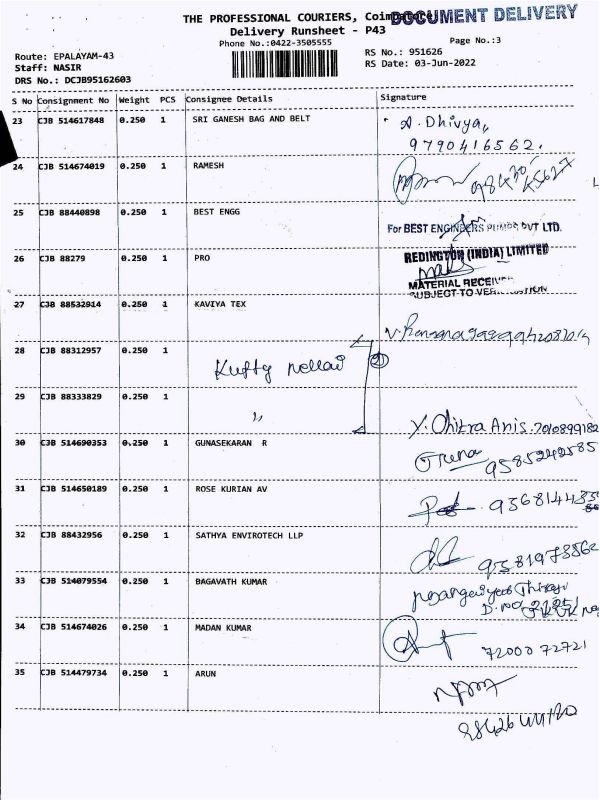 THE PROFESSIONAL COURIERS, Coimbatore
DOCUMENT DELIVERY
Delivery Runsheet - P43
Phone No.:0422-3505555
Page No.:3
Route: EPALAYAM-43
RS No.: 951626
Staff: NASIR
RS Date: 03-Jun-2022
DRS No.: DCJB95162603
S No Consignment No Weight PCS Consignee Details Signature
23 CJB 514617848 0.250 1 SRI GANESH BAG AND BELT A. Dhivya,
9790416562.
24 CJB 514674019 0.250 1 RAMESH
25 CJB 88440898 0.250 1 BEST ENGG
For BEST ENGINEERS PUMPS PVT LTD.
26 CJB 88279 0.250 1 PRO
REDINGTON (INDIA) LIMITED
MATERIAL RECEIVED
SUBJECT TO
27 CJB 88532914 0.250 1 KAVIYA TEX
28 CJB 88312957 0.250 1 Kutty nellai
29 CJB 88333829 0.250 1 ,,
Y. Chitra Anis. 7010899182
30 CJB 514690353 0.250 1 GUNASEKARAN R
9585242585
31 CJB 514650189 0.250 1 ROSE KURIAN AV
32 CJB 88432956 0.250 1 SATHYA ENVIROTECH LLP
33 CJB 514079554 0.250 1 BAGAVATH KUMAR
34 CJB 514674026 0.250 1 MADAN KUMAR
72000 72721
35 CJB 514479734 0.250 1 ARUN